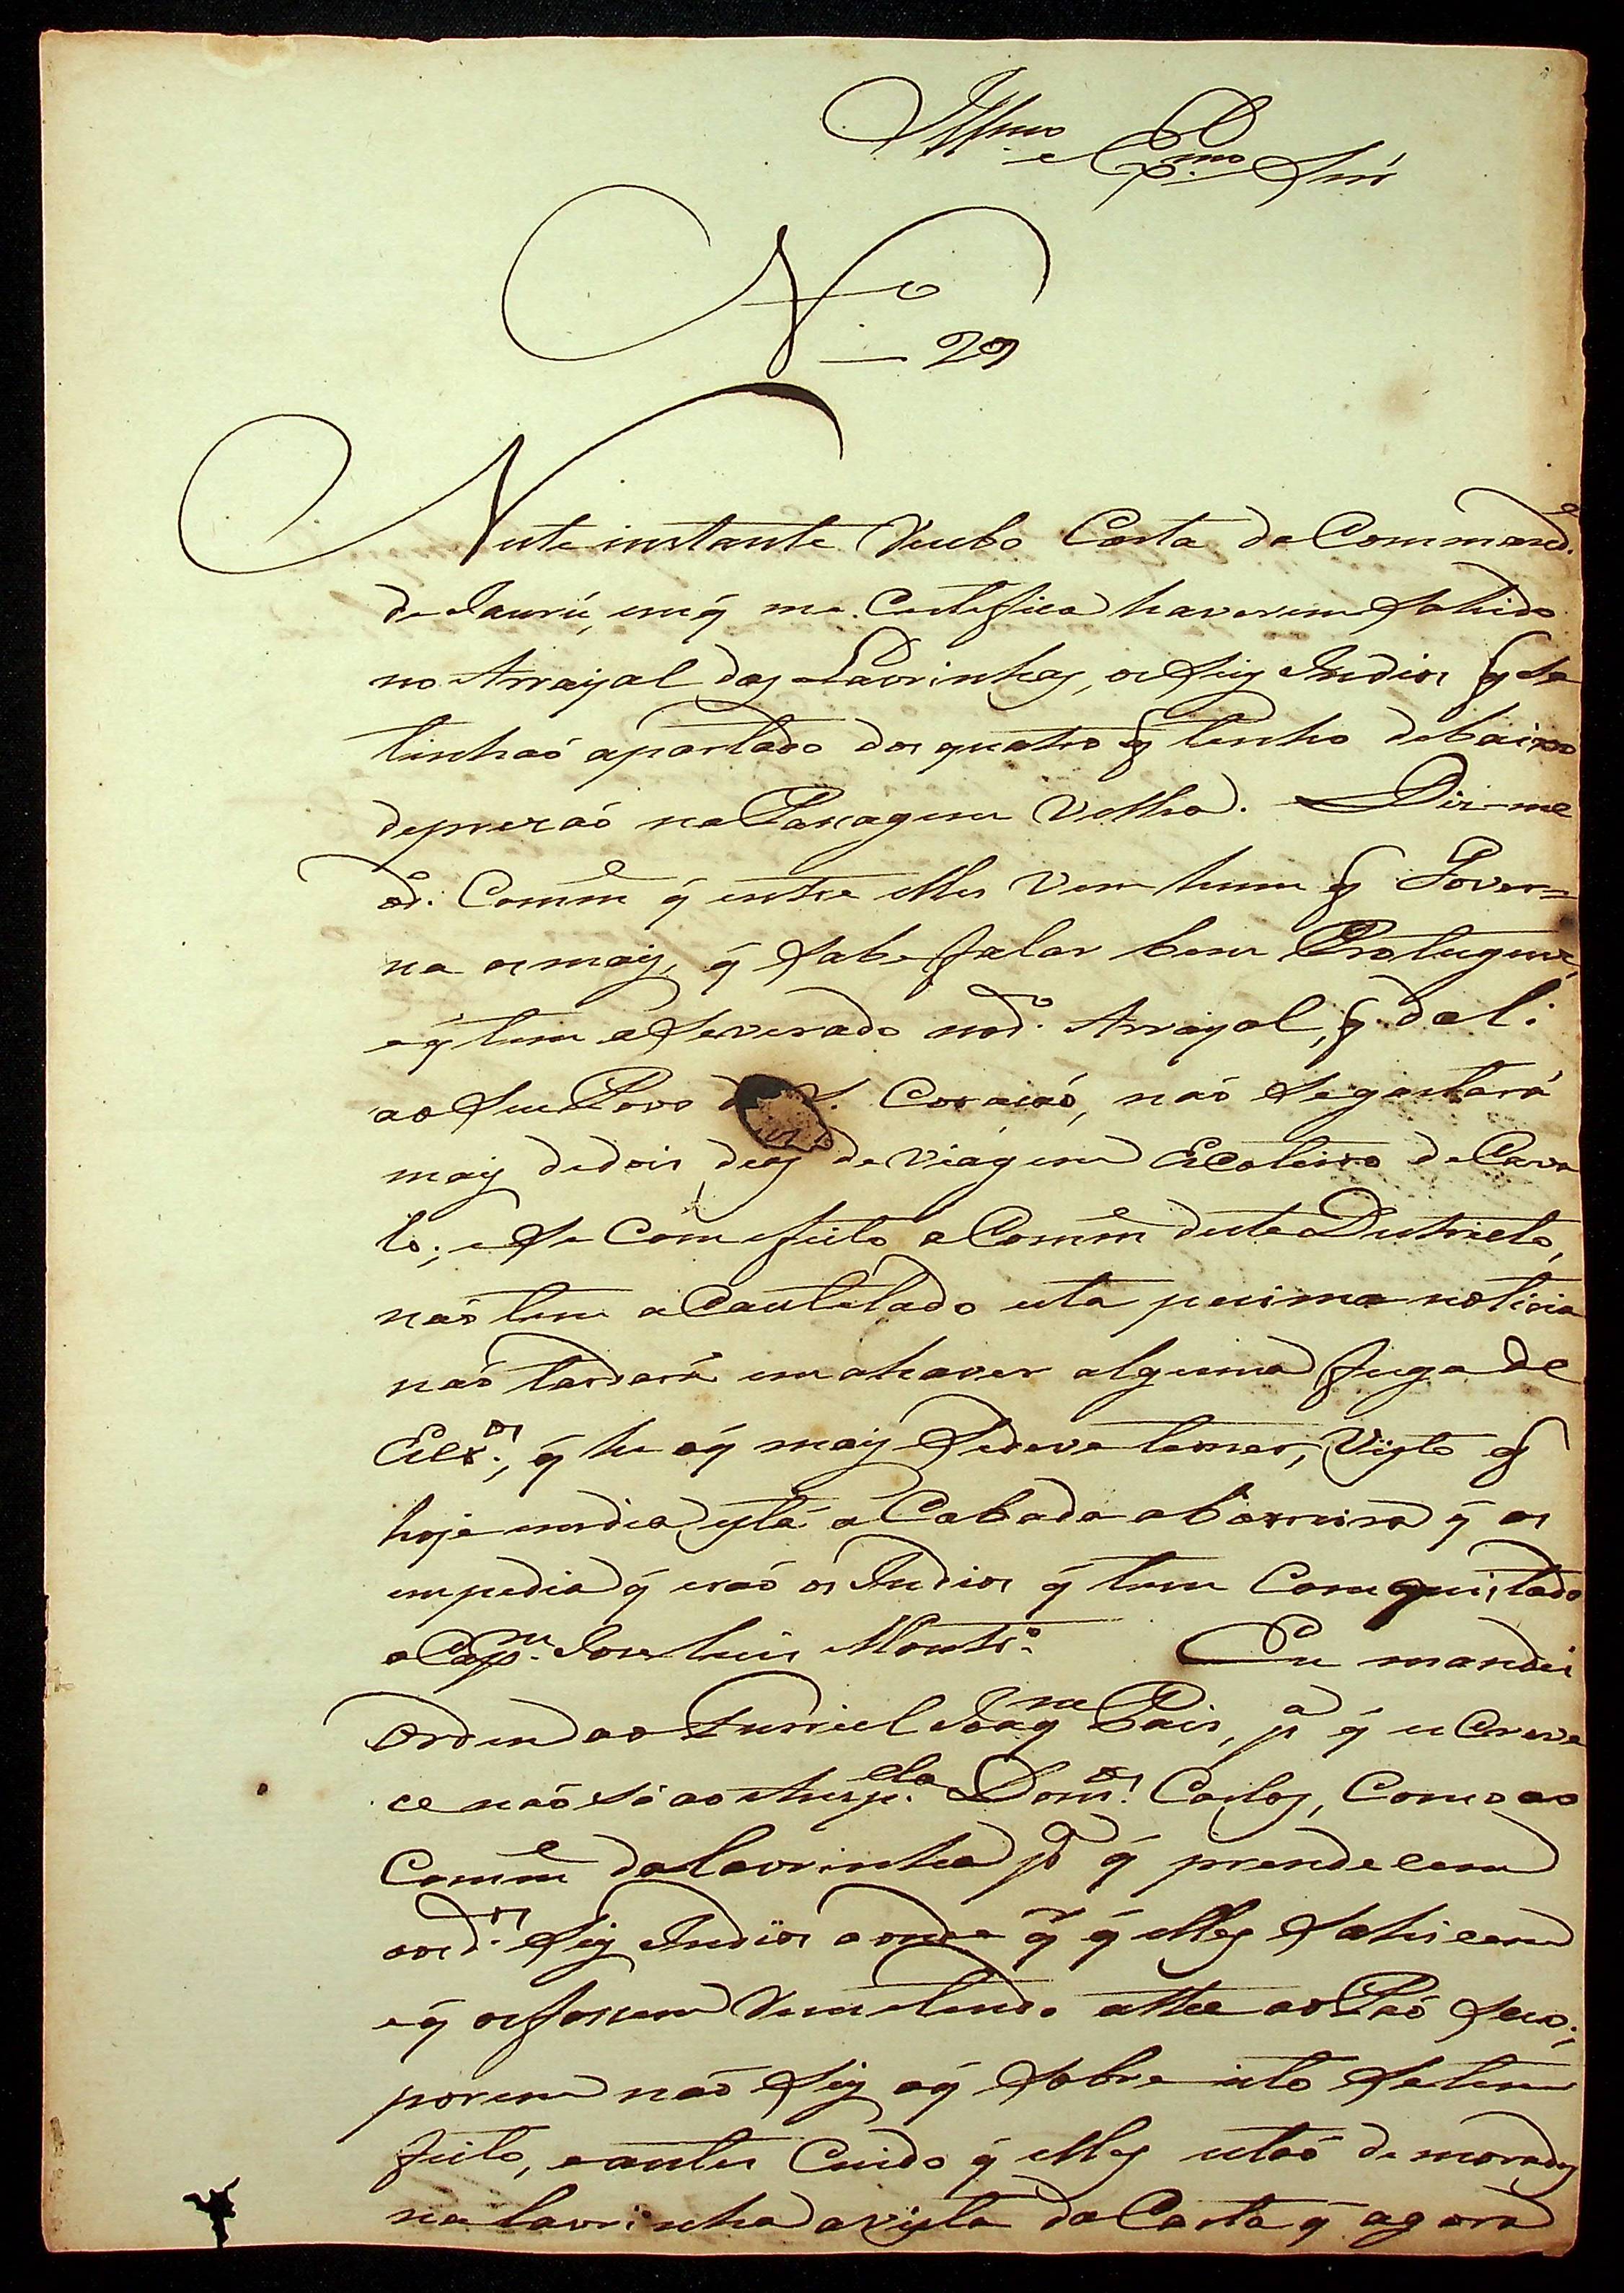 Illmo e Exmo Snr
No 29
Neste instante Recebo Carta do Commande.
de Jaurú, em q̃ me Certefica haverem sahido
no Arrayal das Lavrinhas, os seis Indios q̃ se
tinhaõ apartado dos quatro q̃ tenho debaixo
de prezaõ na Paragem Velha. Diz-me
o d.o Comme q̃ entre elles vem hum q̃ Gover=
na os mais, q̃ sabe falar bem Protuguez,
e q̃ tem aseverado no d.o Arrayal, q̃ dali
ao seu Povo de S. Coraçaõ, naõ se gastará
mais de dois dias de viágem Escoteiro de Cava
lo; e se com efeito o Comme deste Destricto,
naõ tem aCautelado esta pecima noticia
naõ tardará em ahaver alguma fuga de
Escr.os, q̃ he o q̃ mais se deve temer, Visto q̃
hoje em dia está aCabada abarreira q̃ os
empedia q̃ eraõ os Indios q̃ tem Comquistado
o Cap.m Joze Luis Montr.o Eu mandei
Ordem ao Furriel Joaq.m Pais, p.a q̃ esCreve
ce naõ só ao Ansp.da Dom.os Carlos, Como ao
Comme da Lavrinha p.a q̃ prendecem
aos d.os seis Indios aonde q.r q̃ elles sahicem
e q̃ os fosem Remetendo athe ao Páo seco;
porem naõ sey o q̃ sobre isto se tem
feito, e antes Cuido q̃ elles estaõ de morada
na Lavrinha avista da Carta q̃ agora